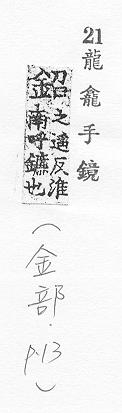 21 龍龕手鏡
鉊之遥反淮
南呼鐮也
（金部．p.13）